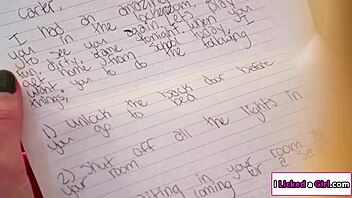 Carter,
I had an amazing
you in the lockeroom.
to see you again. Let's play
fun, dirty game tonight. When you
get home from school today I
want you to do the following
things:
1) unlock the back door before
you go to bed
2) shut off all the lights in
your room
in your room
coming for a
I Licked a Girl.com